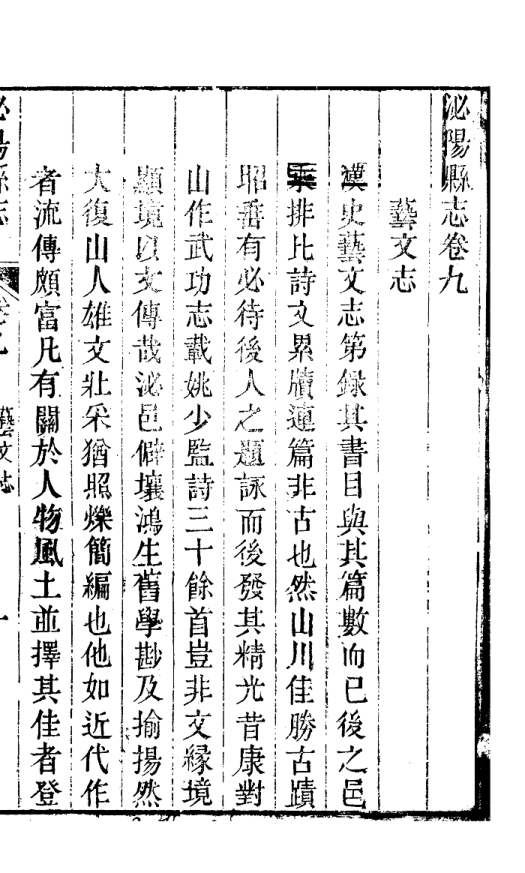 泌陽縣志卷九
藝文志
漢史藝文志第録其書目與其篇數而已後之邑
乘排比詩文累牘連篇非古也然山川佳勝古蹟
昭垂有必待後人之題詠而後發其精光昔康對
山作武功志載姚少監詩三十餘首豈非文縁境
顯境以文傳哉泌邑僻壤鴻生舊學尠及揄揚然
大復山人雄文壯采猶照爍簡編也他如近代作
者流傳頗富凡有關於人物風土並擇其佳者登
泌陽縣志 卷九 藝文志 一